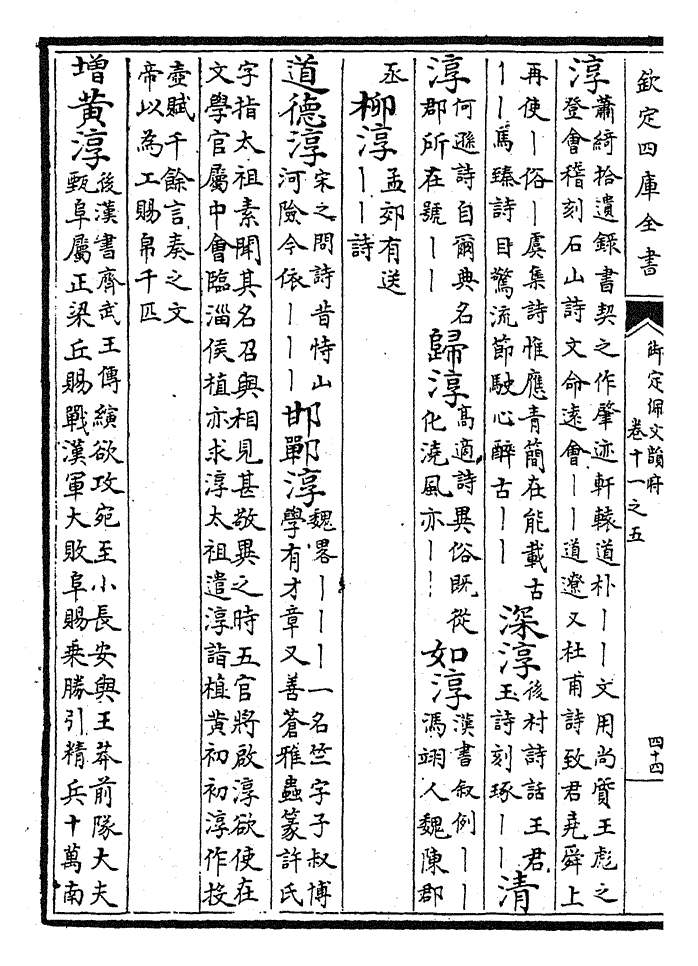 欽定四庫全書
御定佩文韻府
卷十一之五
四十四
淳
蕭綺拾遺錄書契之作肇迹軒轅道朴丨丨文用尚質王彪之
登會稽刻石山詩文命遠會丨丨道遼又杜甫詩致君堯舜上
再使丨俗丨虞集詩惟應青簡在能載古
丨丨馬臻詩目驚流節駛心醉古丨丨
深淳
後村詩話王君
玉詩刻琢丨丨
清
淳
何遜詩自爾典名
郡所在號丨丨
歸淳
高適詩異俗既從
化澆風亦丨丨
如淳
漢書叙例丨丨
馮翊人魏陳郡
丞
柳淳
孟郊有送
丨丨詩
道德淳
宋之問詩昔恃山
河險今依丨丨丨
邯鄲淳
魏畧丨丨丨一名竺字子叔博
學有才章又善蒼雅蟲篆許氏
字指太祖素聞其名召與相見甚敬異之時五官將啟淳欲使在
文學官屬中會臨淄侯植亦求淳太祖遣淳詣植黄初初淳作投
壺賦千餘言奏之文
帝以為工賜帛千匹
增黄淳
後漢書齊武王傳縯欲攻宛至小長安與王莽前隊大夫
甄阜屬正梁丘賜戰漢軍大敗阜賜乘勝引精兵十萬南